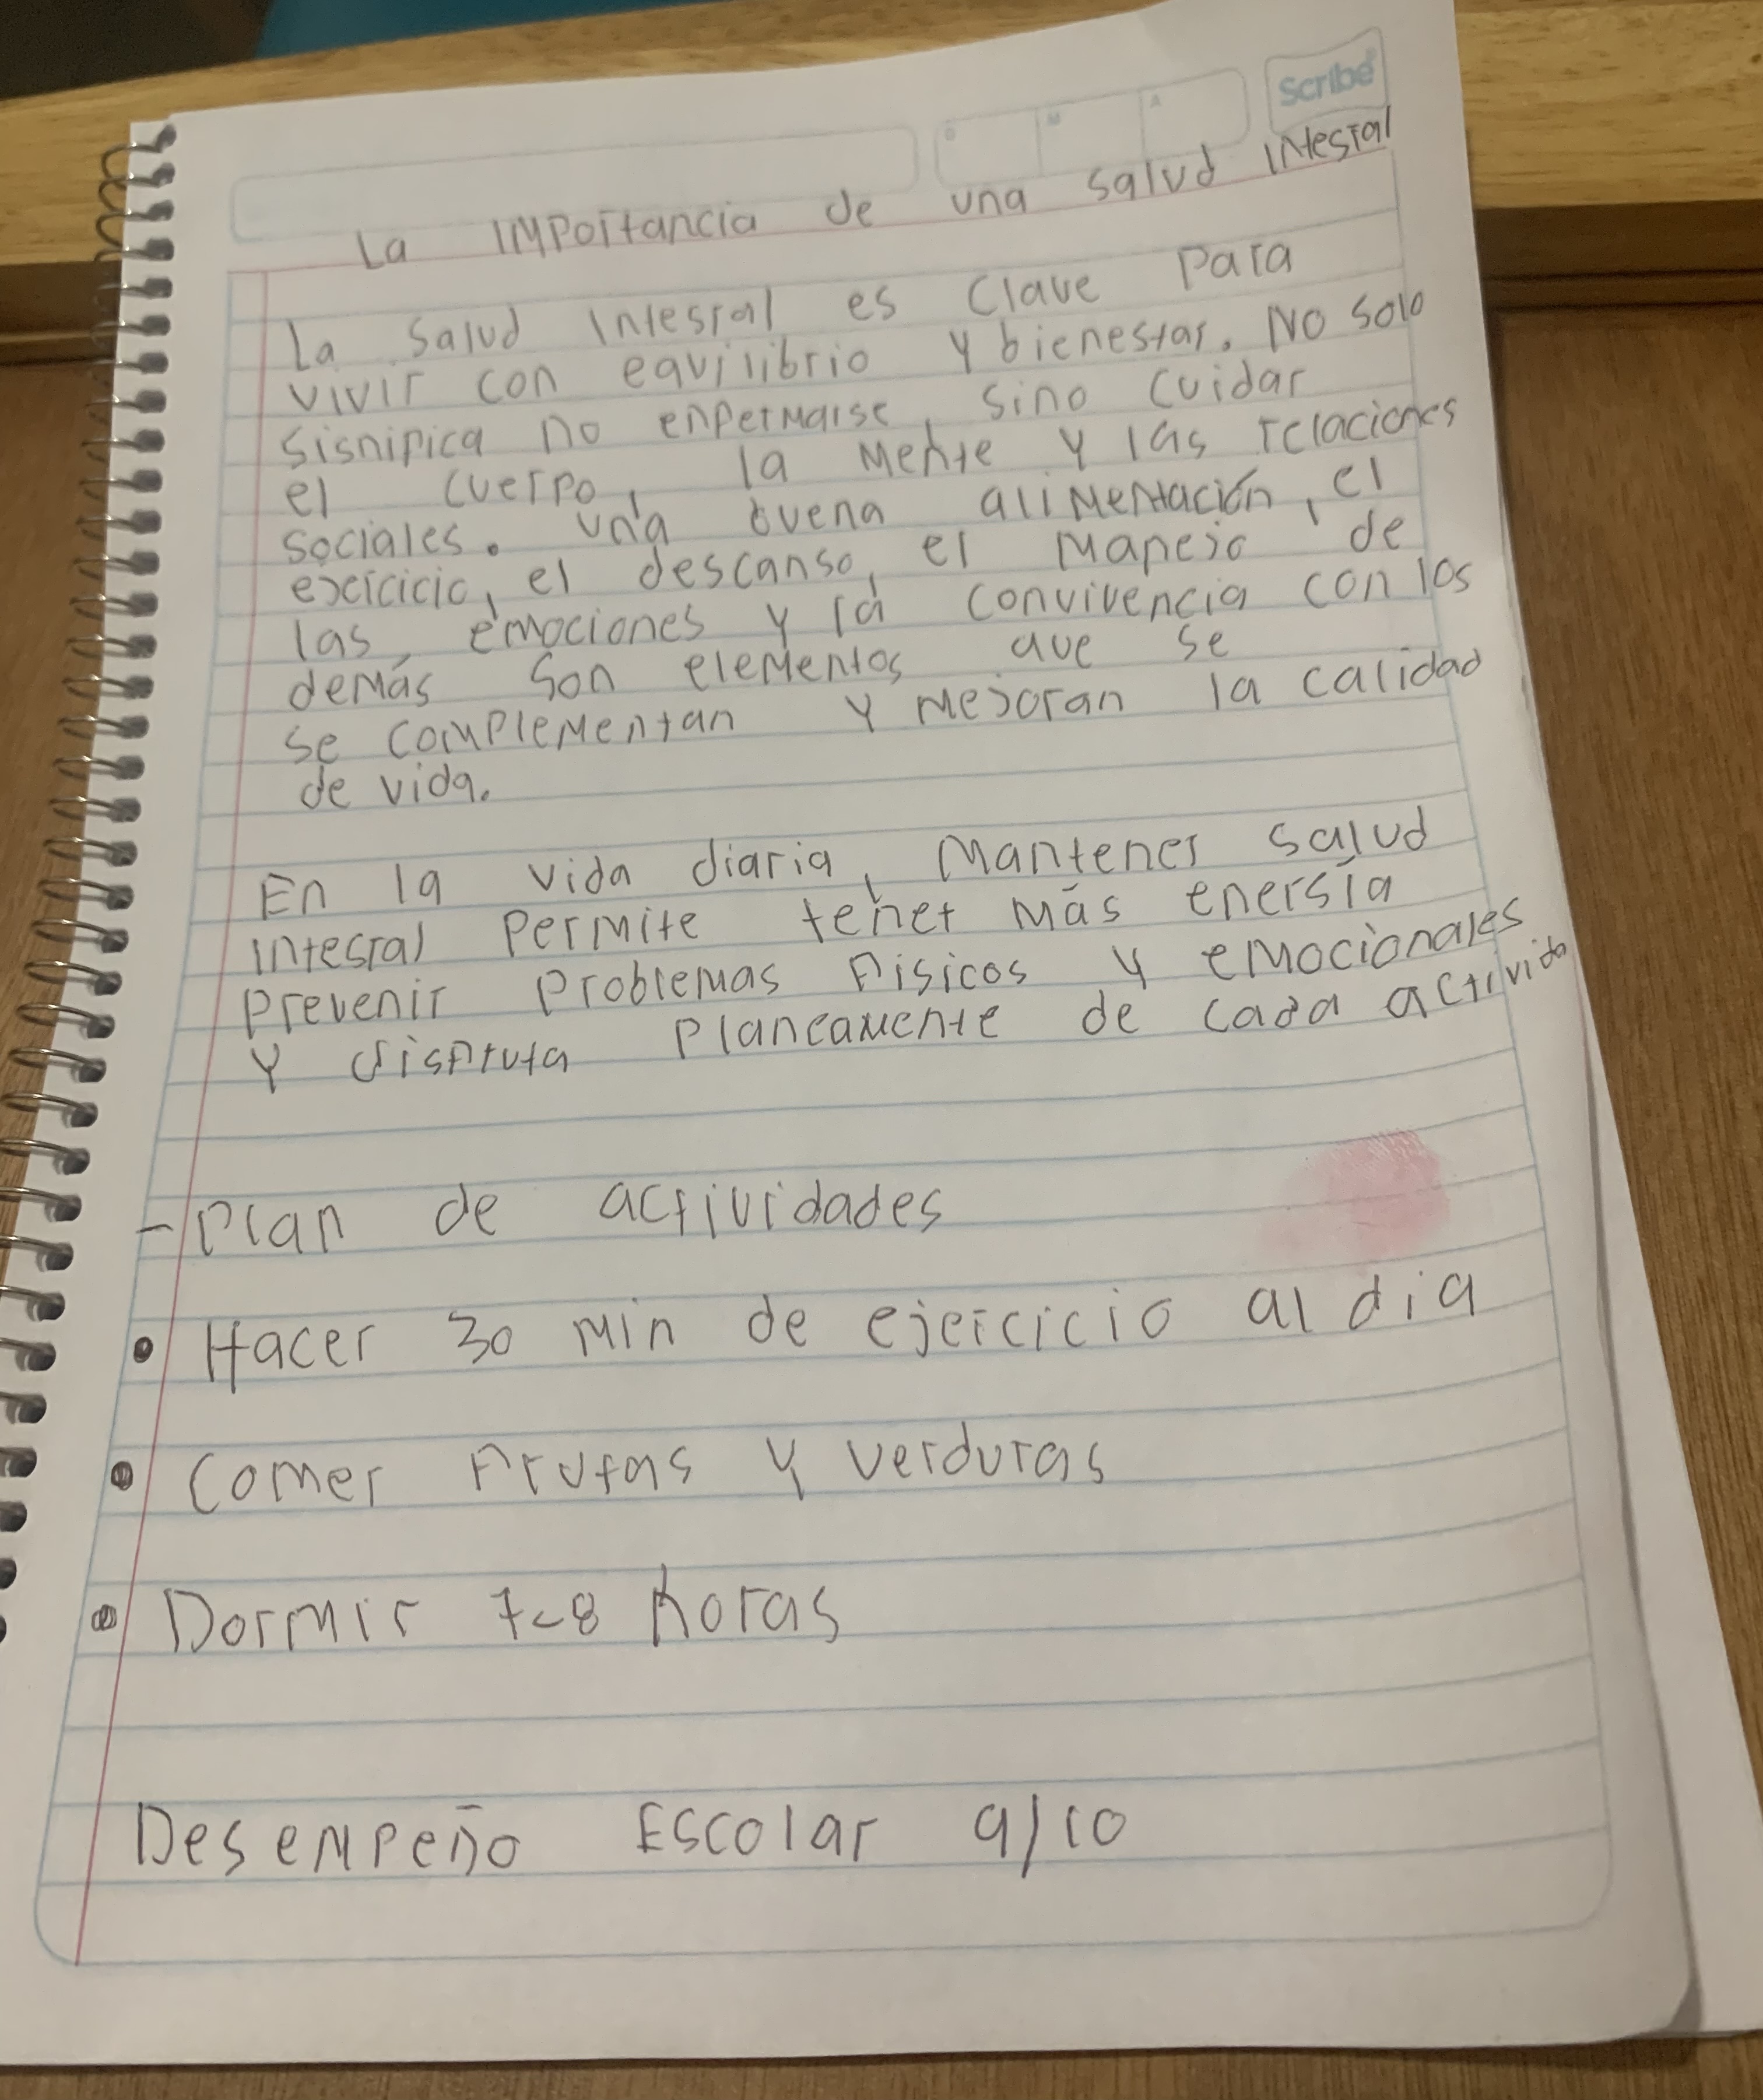 Scribe
D M A
La Importancia de una salud Integral
La salud Integral es clave para
vivir con equilibrio y bienestar. No solo
significa no enfermarse, sino cuidar
el cuerpo, la mente y las relaciones
sociales. una buena alimentación, el
ejercicio, el descanso, el manejo de
las emociones y la convivencia con los
demás son elementos que se
se complementan y mejoran la calidad
de vida.
En la vida diaria, Mantener salud
integral permite tener más energía
prevenir problemas físicos y emocionales
y disfruta planeamente de cada activida
- Plan de actividades
• Hacer 30 min de ejercicio al dia
• Comer frutas y verduras
• Dormir 7-8 horas
Desempeño Escolar 9/10